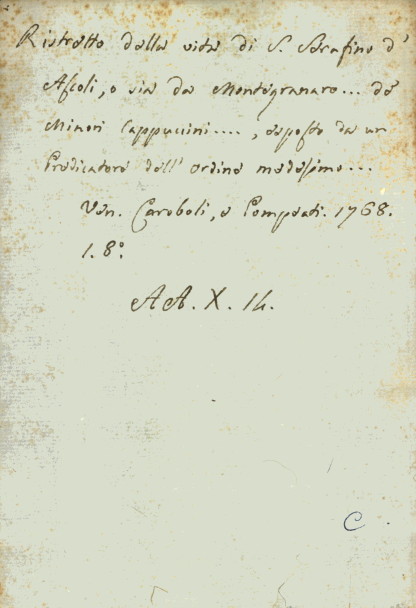 Ristretto della vita di S. Serafino d'
Ascoli, o sia da Montegranaro... de'
Minori Cappuccini...., esposto da un
Predicatore dell' ordine medesimo...
Ven. Caroboli, e Pompeati. 1768.
1. 8°.
AA. X. 14.
C